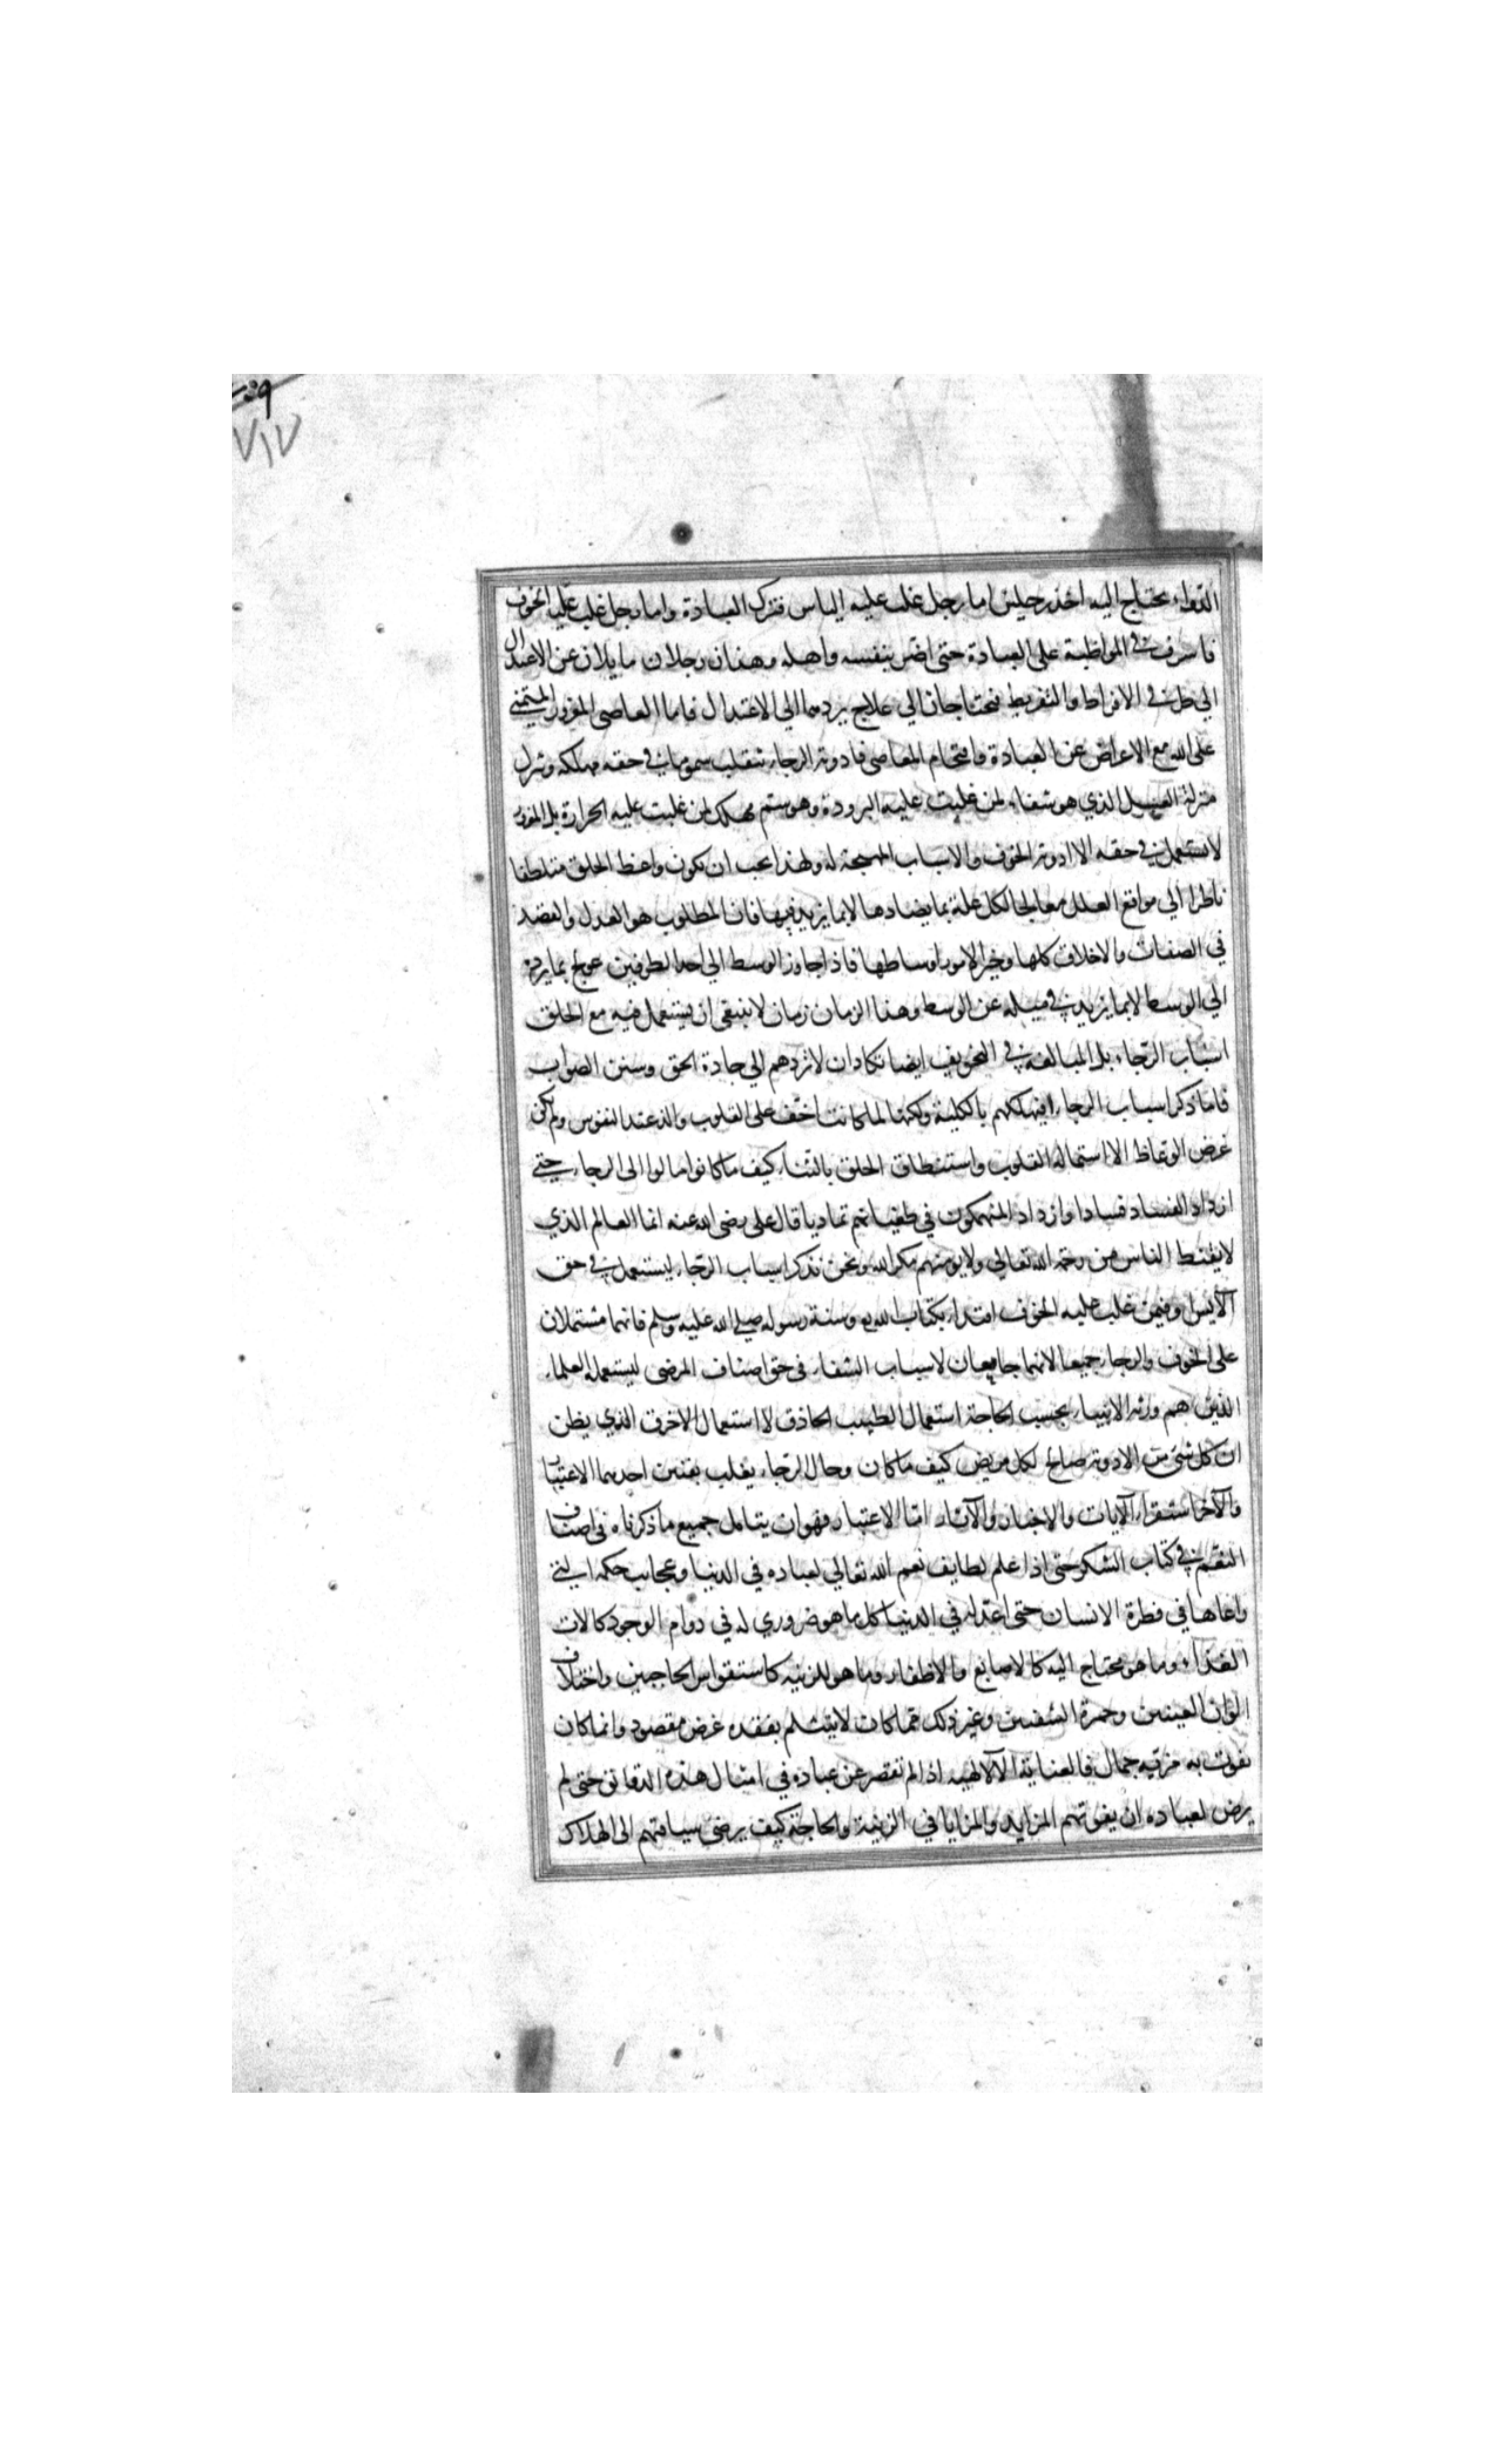 ٧١٧
الدواء يحتاج اليه احد رجلين اما رجل غلب عليه الياس فترك العبادة واما رجل غلب عليه الخوف
فاسرف في المواظبة على العبادة حتى اضر بنفسه واهله وهذان رجلان مايلان عن الاعتدال
الي طرفي الافراط والتفريط فيحتاجان الي علاج يردهما الي الاعتدال فاما العاصي المغرور المتمني
على الله مع الاعراض عن العبادة واقتحام المعاصي فادوية الرجاء تنقلب سموما في حقه مهلكة وتنزل
منزلة العسل الذي هو شفاء لمن غلبت عليه البرودة وهو سم مهلك لمن غلبت عليه الحرارة بل المغرور
لا يستعمل في حقه الا ادوية الخوف والاسباب المهيجة له ولهذا يجب ان يكون واعظ الخلق متلطفا
ناظرا الي مواقع العلل معالجا لكل علة بما يضادها لا بما يزيد فيها فان المطلوب هو العدل والقصد
في الصفات والاخلاق كلها وخير الامور اوساطها فاذا جاوز الوسط الي احد الطرفين عولج بما يرده
الي الوسط لا بما يزيد في ميله عن الوسط وهذا الزمان زمان لا ينبغي ان يستعمل فيه مع الخلق
اسباب الرجاء بل المبالغة في التخويف ايضا تكاد ان لا تردهم الي جادة الحق وسنن الصواب
فاما ذكر اسباب الرجاء فيهلكهم بالكلية ولكنها لما كانت اخف على القلوب والذ عند النفوس ولم يكن
غرض الوعاظ الا استمالة القلوب واستنطاق الخلق بالثناء كيف ما كانوا مالوا الى الرجاء حتي
ازداد الفساد فسادا وازداد المنهمكون في طغيانهم تماديا قال علي رضي الله عنه انما العالم الذي
لا يقنط الناس من رحمة الله تعالي ولا يومنهم مكر الله ونحن نذكر اسباب الرجاء ليستعمل في حق
الآيس او فيمن غلب عليه الخوف اقتداء بكتاب الله وسنة رسوله صلي الله عليه وسلم فانهما مشتملان
على الخوف والرجاء جميعا لانهما جامعان لاسباب الشفاء في حق اصناف المرضى ليستعمله العلماء
الذين هم ورثة الانبياء بحسب الحاجة استعمال الطبيب الحاذق لا استعمال الاخرق الذي يظن
ان كل شئ من الادوية صالح لكل مريض كيف ما كان وحال الرجاء يغلب بفنين احدهما الاعتبار
والآخر استقراء الآيات والاخبار والآثار اما الاعتبار فهو ان يتامل جميع ما ذكرناه في اصناف
النعم في كتاب الشكر حتى اذا علم لطايف نعم الله تعالي لعباده في الدنيا وعجايب حكمه التي
راعاها في فطرة الانسان حتى اعد له في الدنيا كل ما هو ضروري له في دوام الوجود كالات
الغذاء وما هو محتاج اليه كالاصابع والاظفار وما هو للزينه كاستقواس الحاجبين واختلاف
الوان العينين وحمرة الشفتين وغير ذلك مما كان لا ينثلم بفقده غرض مقصود وانما كان
يفوت به مزية جمال فالعناية الآلهية اذا لم تقصر عن عباده في امثال هذه الدقائق حتى لم
يرض لعباده ان يفوتهم المزايد والمزايا في الزينة والحاجة كيف يرضى سياقتهم الى الهلاك